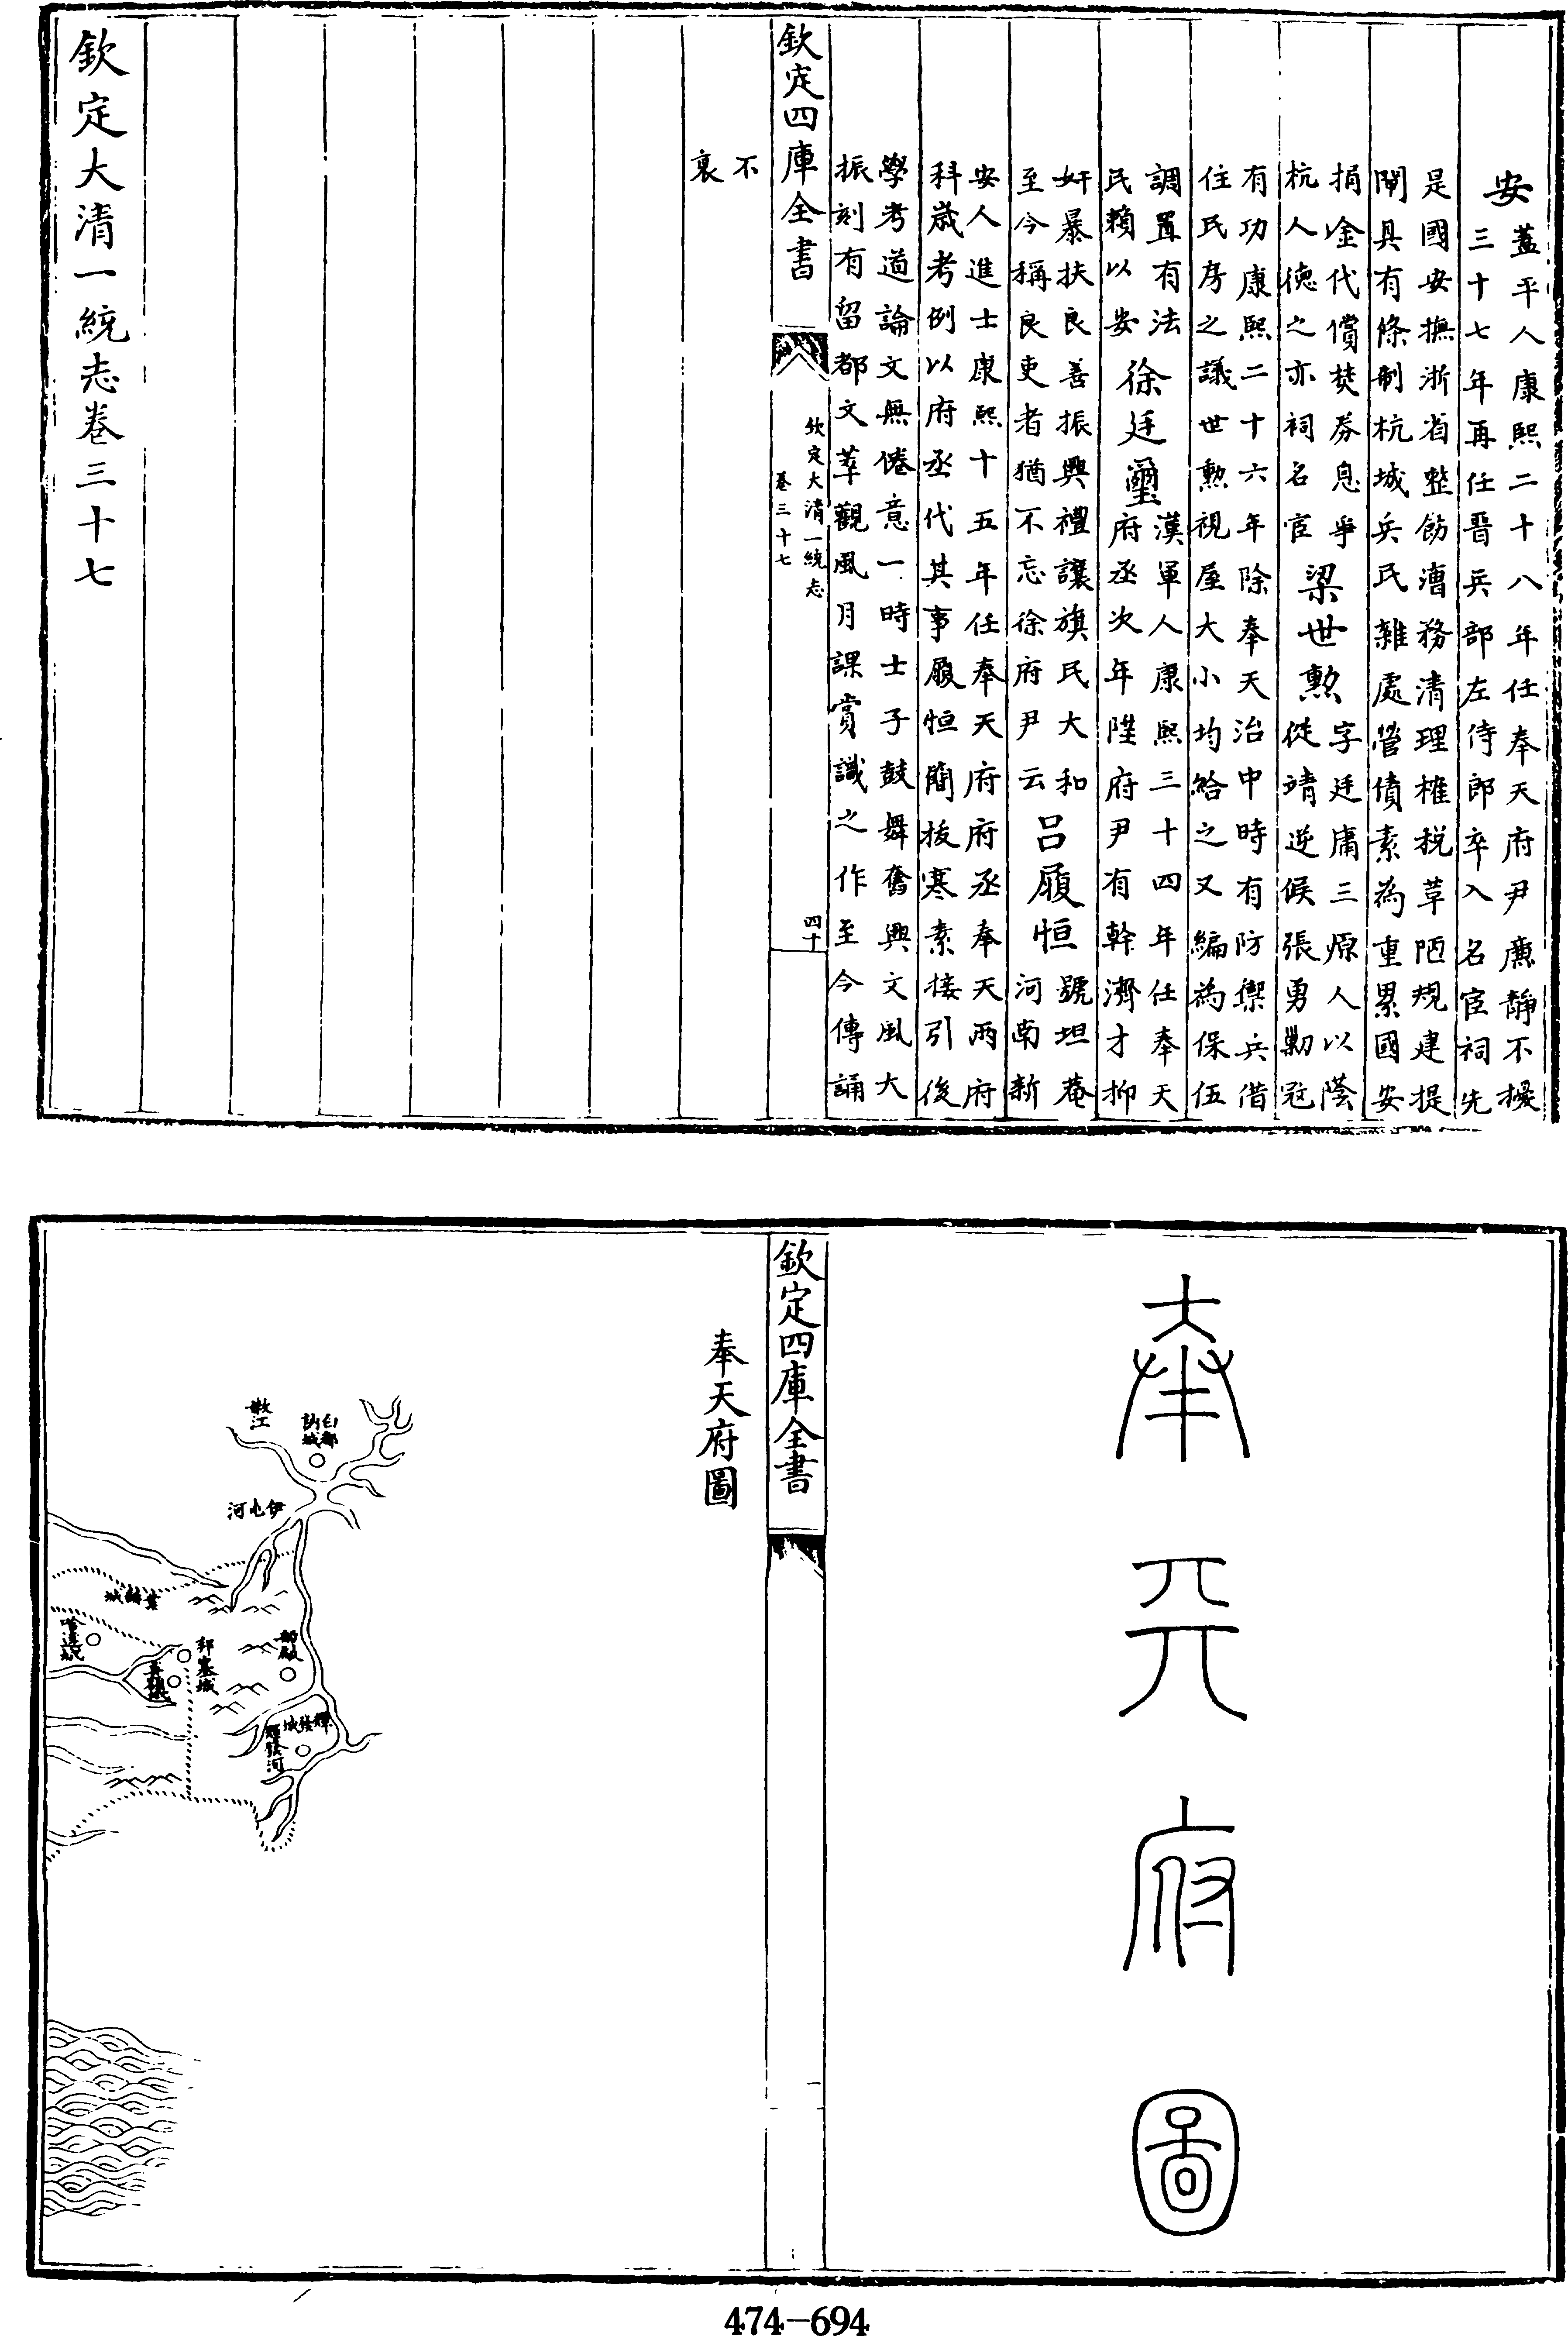 安
蓋平人康熙二十八年任奉天府尹廉靜不擾
三十七年再任晉兵部左侍郎卒入名宦祠先
是國安撫浙省整飭漕務清理榷税革陋規建提
閘具有條制杭城兵民雜處營債素為重累國安
捐金代償焚券息爭
杭人徳之亦祠名宦
梁世勲
字廷庸三原人以蔭
從靖逆侯張勇勦冦
有功康熙二十六年除奉天治中時有防禦兵借
住民房之議世勲視屋大小均給之又編為保伍
調置有法
民賴以安
徐廷璽
漢軍人康熙三十四年任奉天
府丞次年陞府尹有幹濟才抑
奸暴扶良善振興禮讓旗民大和
至今稱良吏者猶不忘徐府尹云
吕履恒
號坦菴
河南新
安人進士康熙十五年任奉天府府丞奉天兩府
科歲考例以府丞代其事履恒簡拔寒素接引後
學考道論文無倦意一時士子鼓舞奮興文風大
振刻有留都文萃觀風月課賞識之作至今傳誦
欽定四庫全書
欽定大清一統志
卷三十七
四十
不
衰
欽定大清一統志卷三十七
奉天府圖
欽定四庫全書
奉天府圖
白都訥城
嫩江
伊屯河
輝發城
輝發河
葉赫城
哈達城
474-694